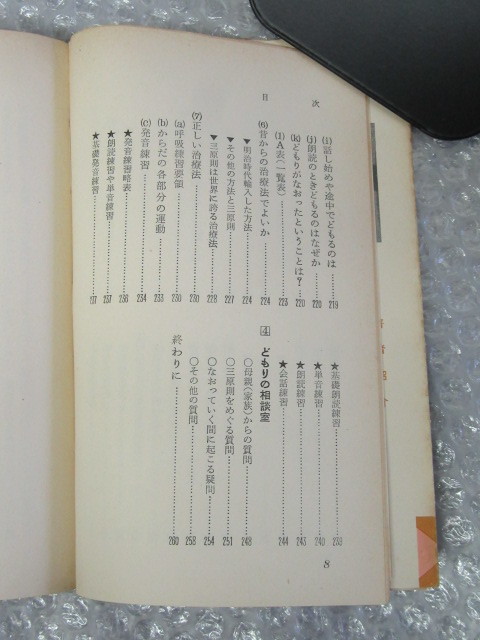 目次
(i)話し始めや途中でどもるのは……219
(j)朗読のときどもるのはなぜか……220
(k)どもりがなおったということは?……220
(l)A表(一覧表)……223
(6)昔からの治療法でよいか……224
▼明治時代輸入した方法……224
▼その他の方法と三原則……227
▼三原則は世界に誇る治療法……228
(7)正しい治療法……230
(a)呼吸練習要領……230
(b)からだの各部分の運動……233
(c)発音練習……234
★発音練習略表……236
★朗読練習や単音練習……237
★基礎発音練習……237
★基礎朗読練習……239
★単音練習……240
★朗読練習……243
★会話練習……244
4 どもりの相談室
○母親(家族)からの質問……248
○三原則をめぐる質問……251
○なおっていく間に起こる疑問……254
○その他の質問……258
終わりに……260
8